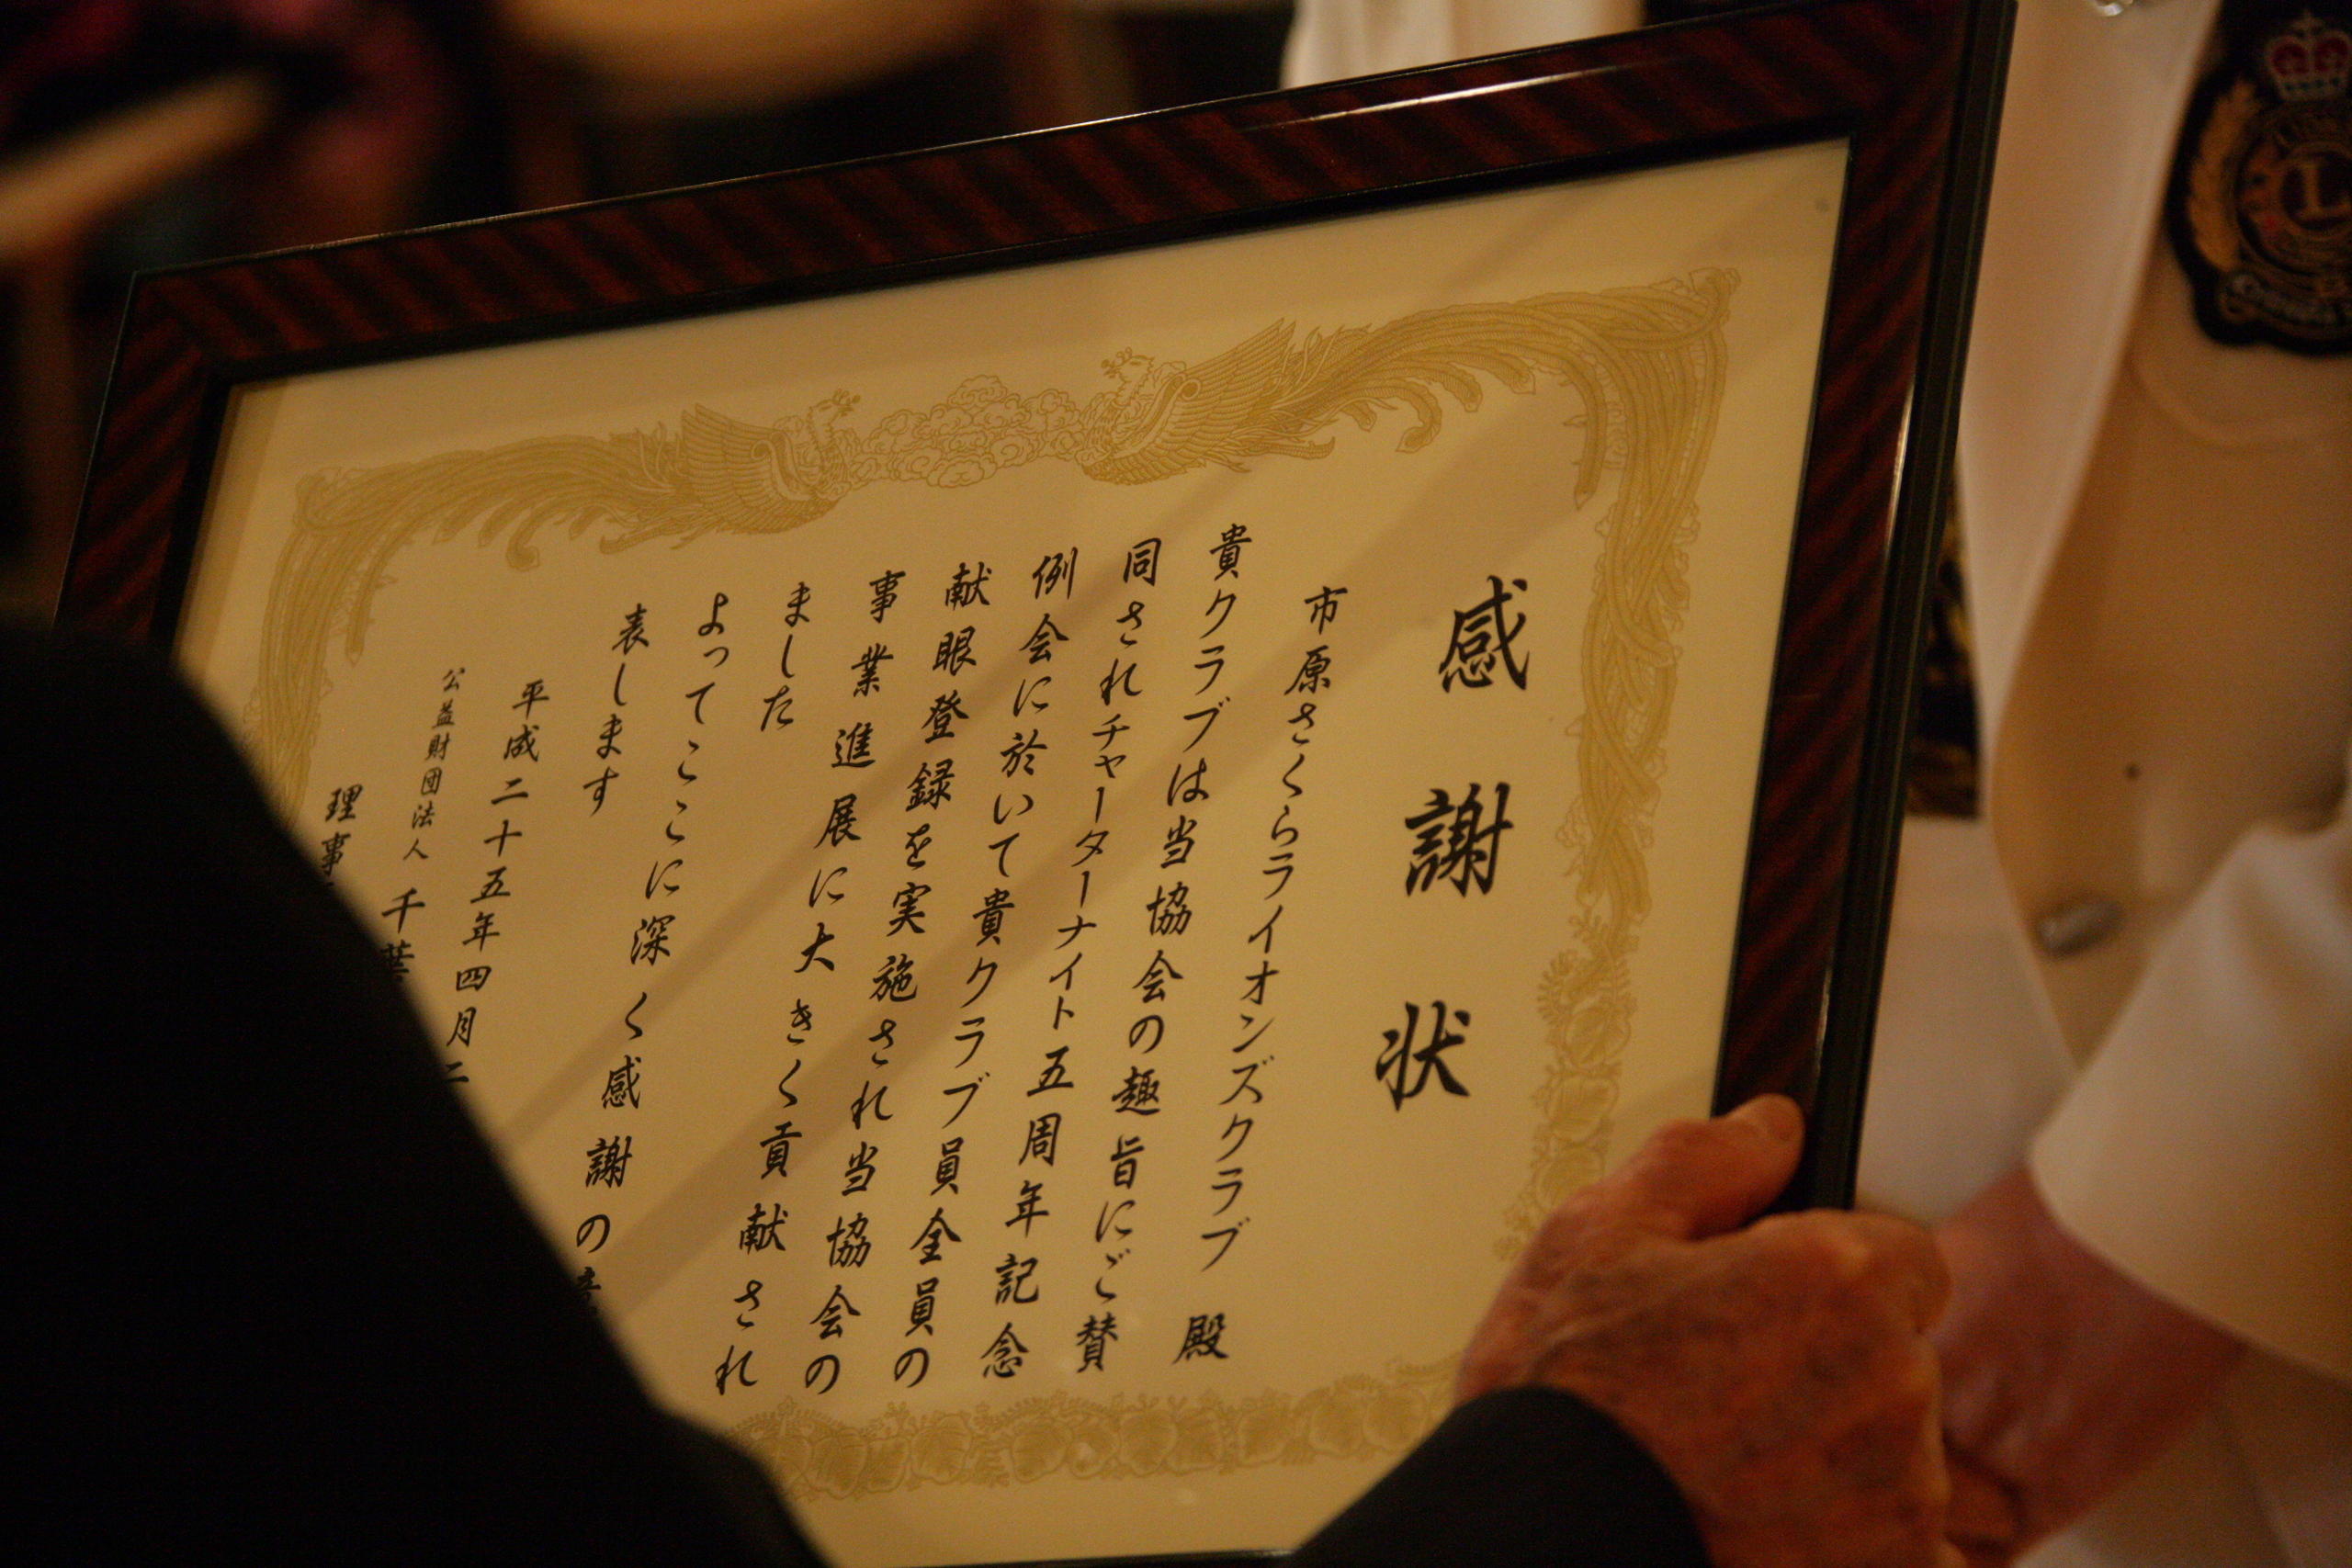 感謝状
市原さくらライオンズクラブ 殿
貴クラブは当協会の趣旨にご賛
同されチャーターナイト五周年記念
例会に於いて貴クラブ員全員の
献眼登録を実施され当協会の
事業進展に大きく貢献され
ました
よってここに深く感謝の意
表します
平成二十五年四月二
公益財団法人 千葉
理事
L